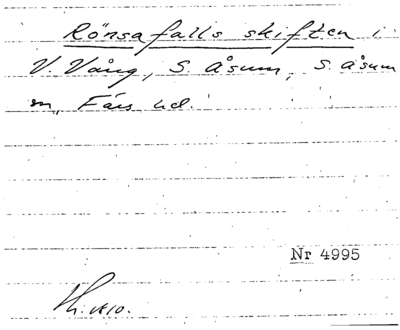 Rönsafalls skiften i
V. Vång, S. Åsum, S. Åsum
sn, Färs hd.
Nr 4995